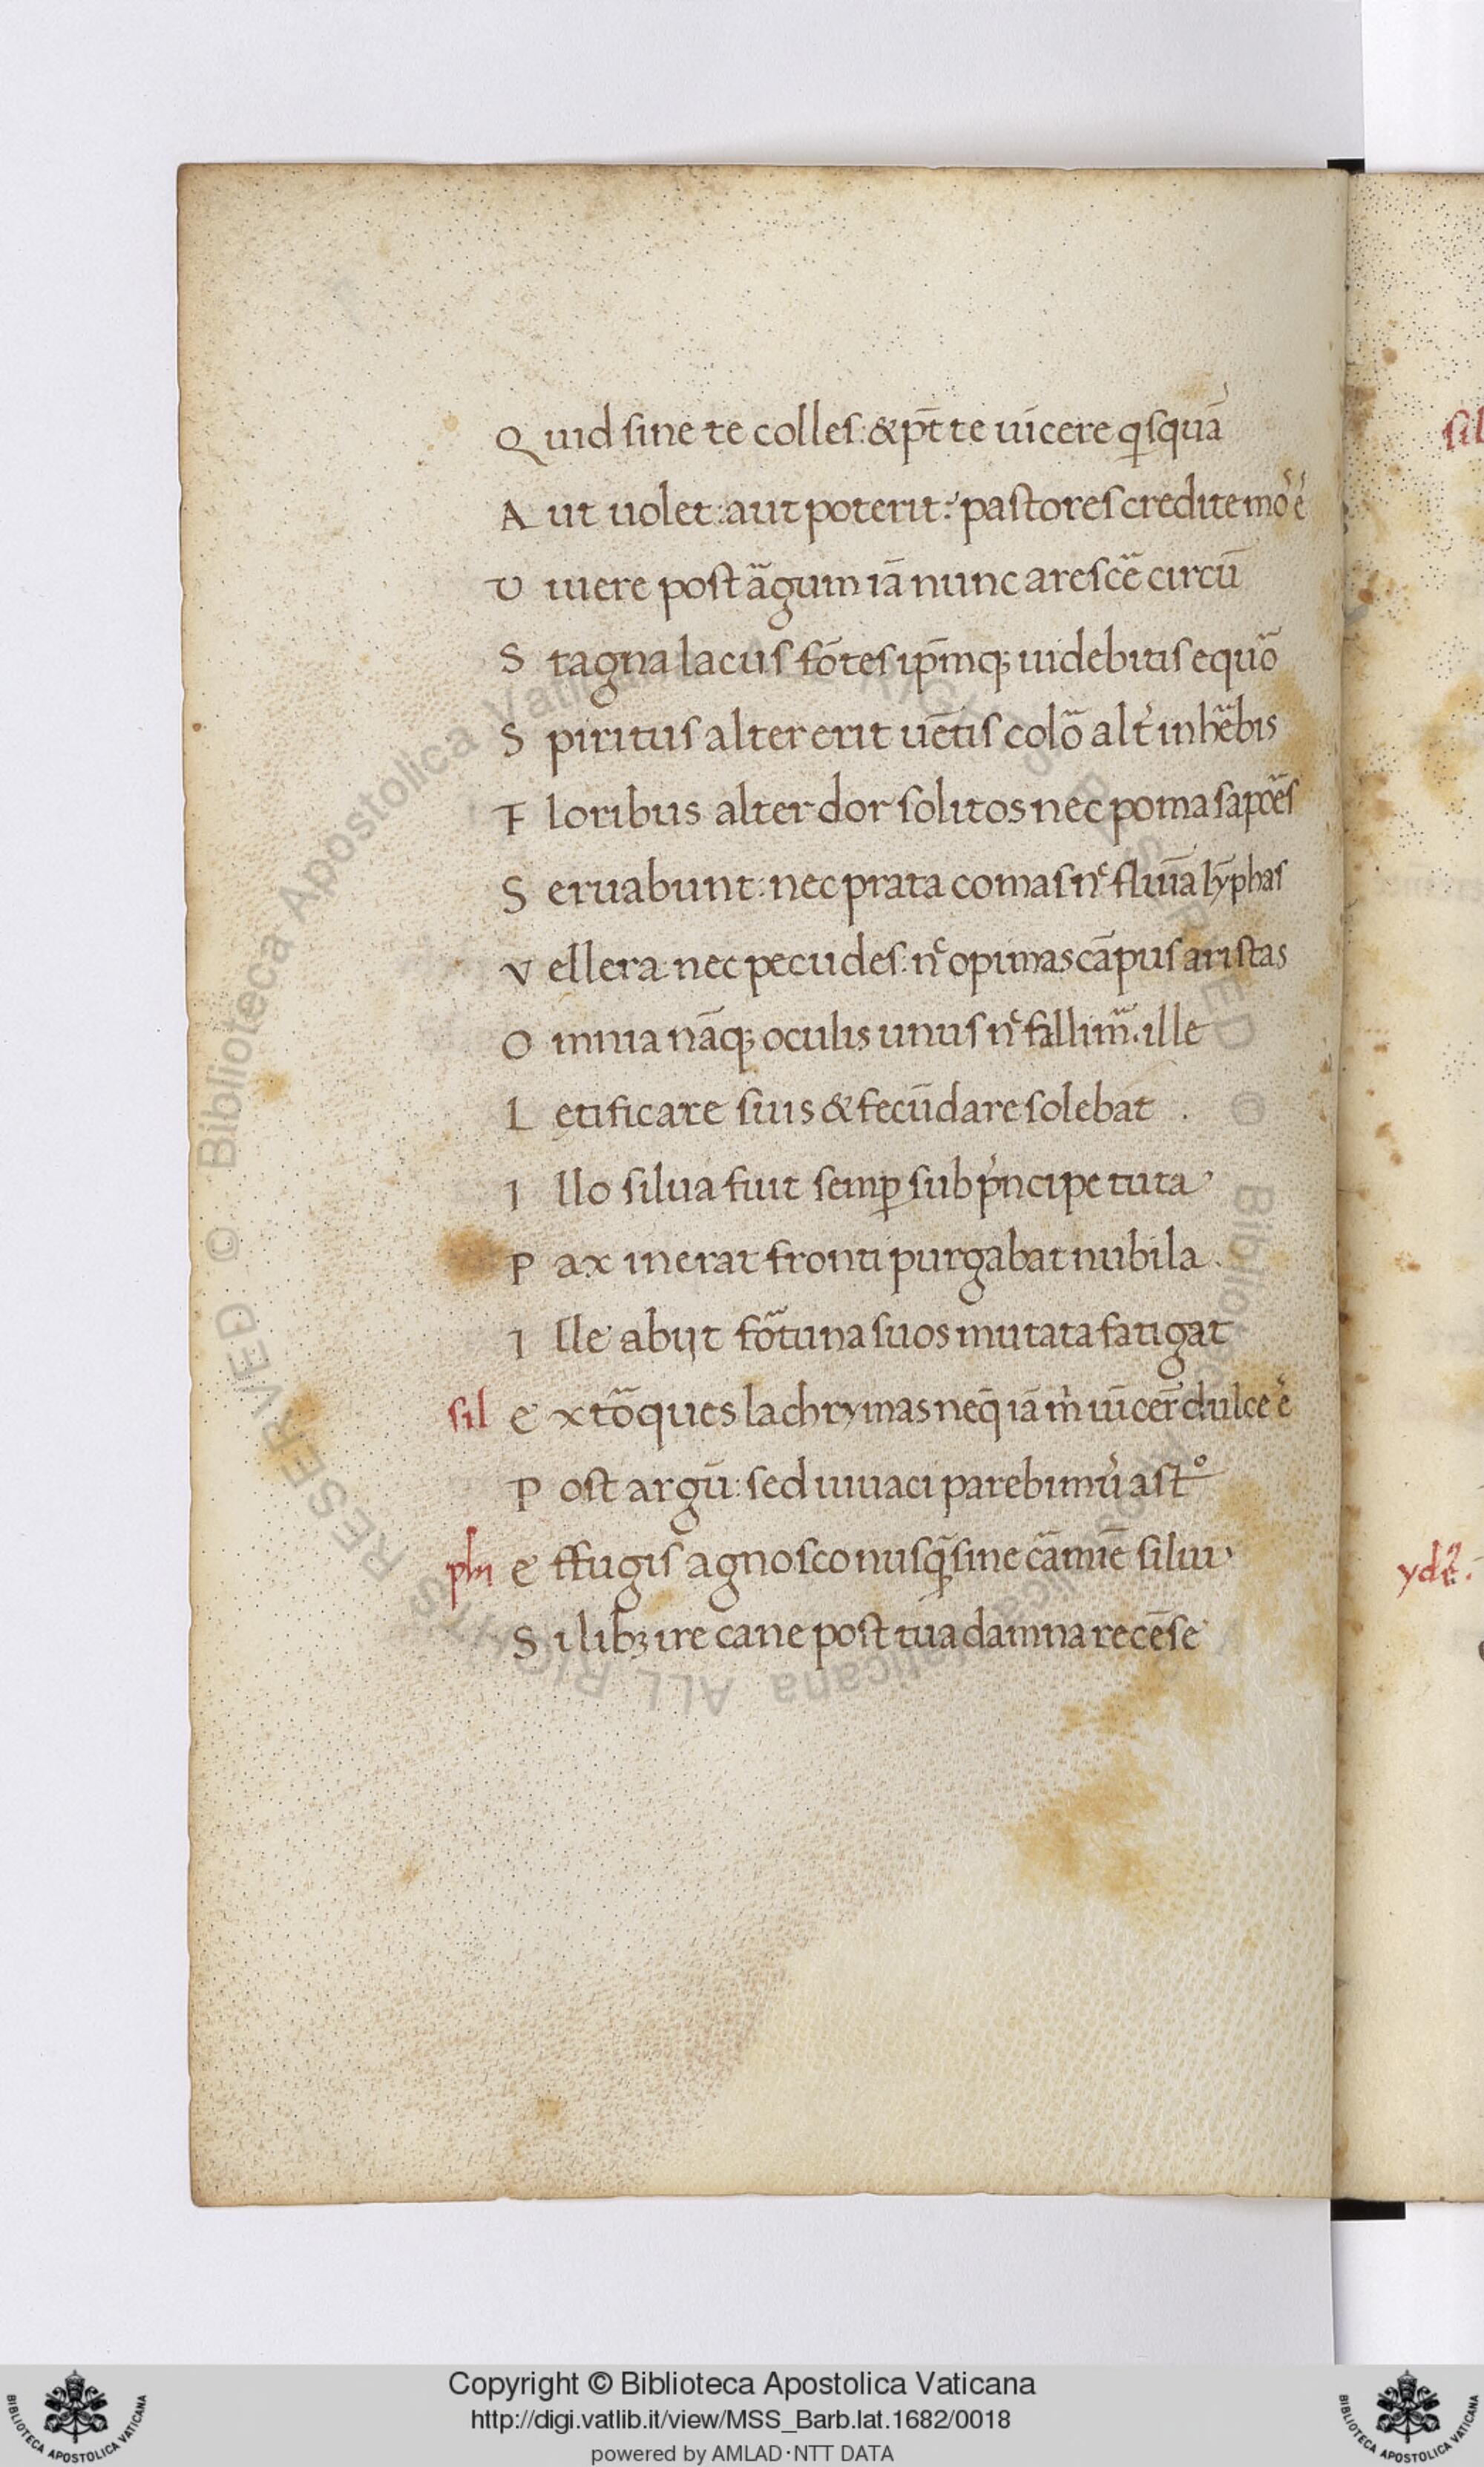 Q uid sine te colles: & p̄t te uincere q̇squā
A ut uolet: aut poterit: pastores credite mōs ē
U iuere post āgum iā nunc arescē circū
S tagna lacus fōtes ip̄mq; uidebitis equō
S piritus alter erit uētis colō alt̓ in hēbis
F loribus alter dor solitos nec poma sapoēs
S eruabunt: nec prata comas nͨ flūia lȳphas
V ellera nec pecudes: nͨ opimas cāpus aristas
O mnia nāq; oculis unus nͨ fallim᷑. ille
L etificare suis & fecūdare solebat .
I llo silua fuit semꝑ sub pͥncipe tuta
P ax inerat fronti purgabat nubila .
I lle abijt fōtuna suos mutata fatigat
sil E xtōques lachrymas neq̄ iā m̓ uīcer̄ dulce ē
P ost argū: sed uiuaci parebimꝰ astº
phi E ffugis agnosco nusq̄ sine cāmīe silui
S i libꝫ ire cane post tua damna recēse
sil
yd̓e.
Copyright © Biblioteca Apostolica Vaticana
http://digi.vatlib.it/view/MSS_Barb.lat.1682/0018
powered by AMLAD·NTT DATA
BIBLIOTECA APOSTOLICA VATICANA
BIBLIOTECA APOSTOLICA VATICANA